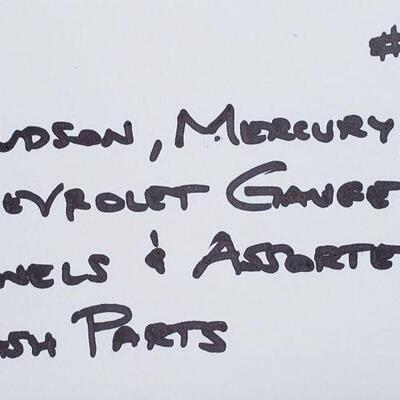 #
UDSON, MERCURY
EVROLET GAUGE
NELS & ASSORTE
ASH PARTS